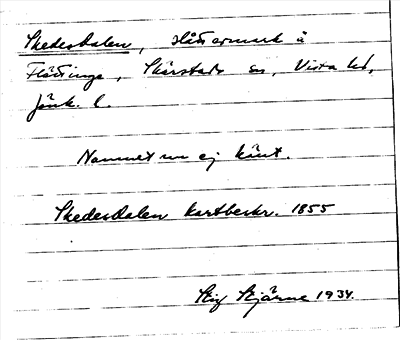 Skedesdalen, slåttermark å
Flättinge, Skärstads sn, Vista hd,
Jönk. l.
Namnet nu ej känt.
Skedesdalen kartbeskr. 1855
Stig Stjärne 1934.